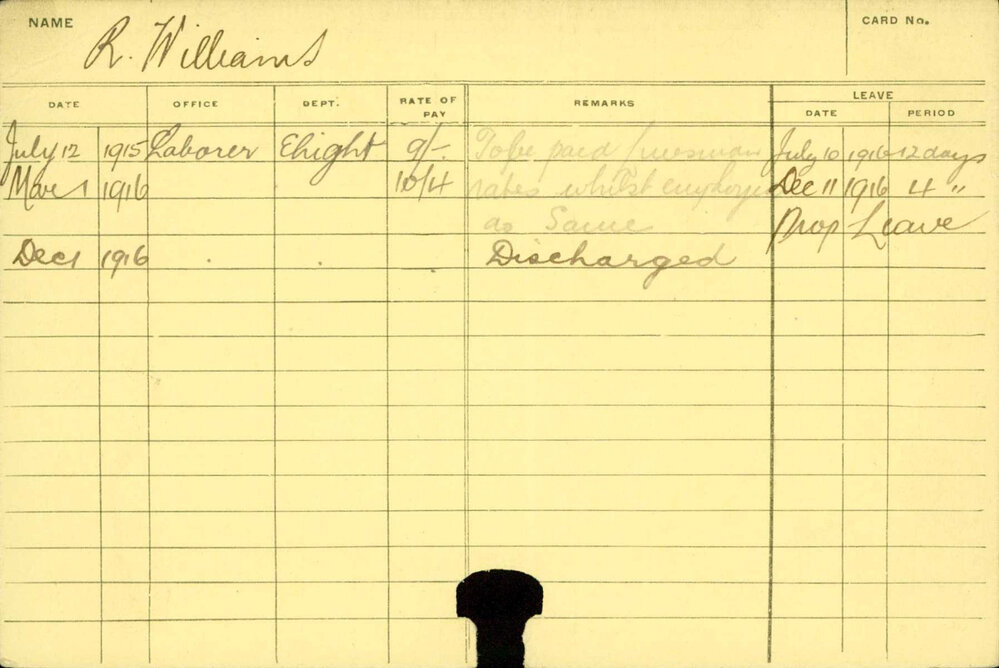 NAME
R. Williams
CARD No.
DATE OFFICE DEPT. RATE OF PAY REMARKS LEAVE
DATE PERIOD
July 12 1915 Laborer Elight 9/- To be paid July 10 1916 12 days
Mar 1 1916 10/4 rates whilst employed Dec 11 1916 4 "
as Same Prop Leave
Dec 1 1916 Discharged